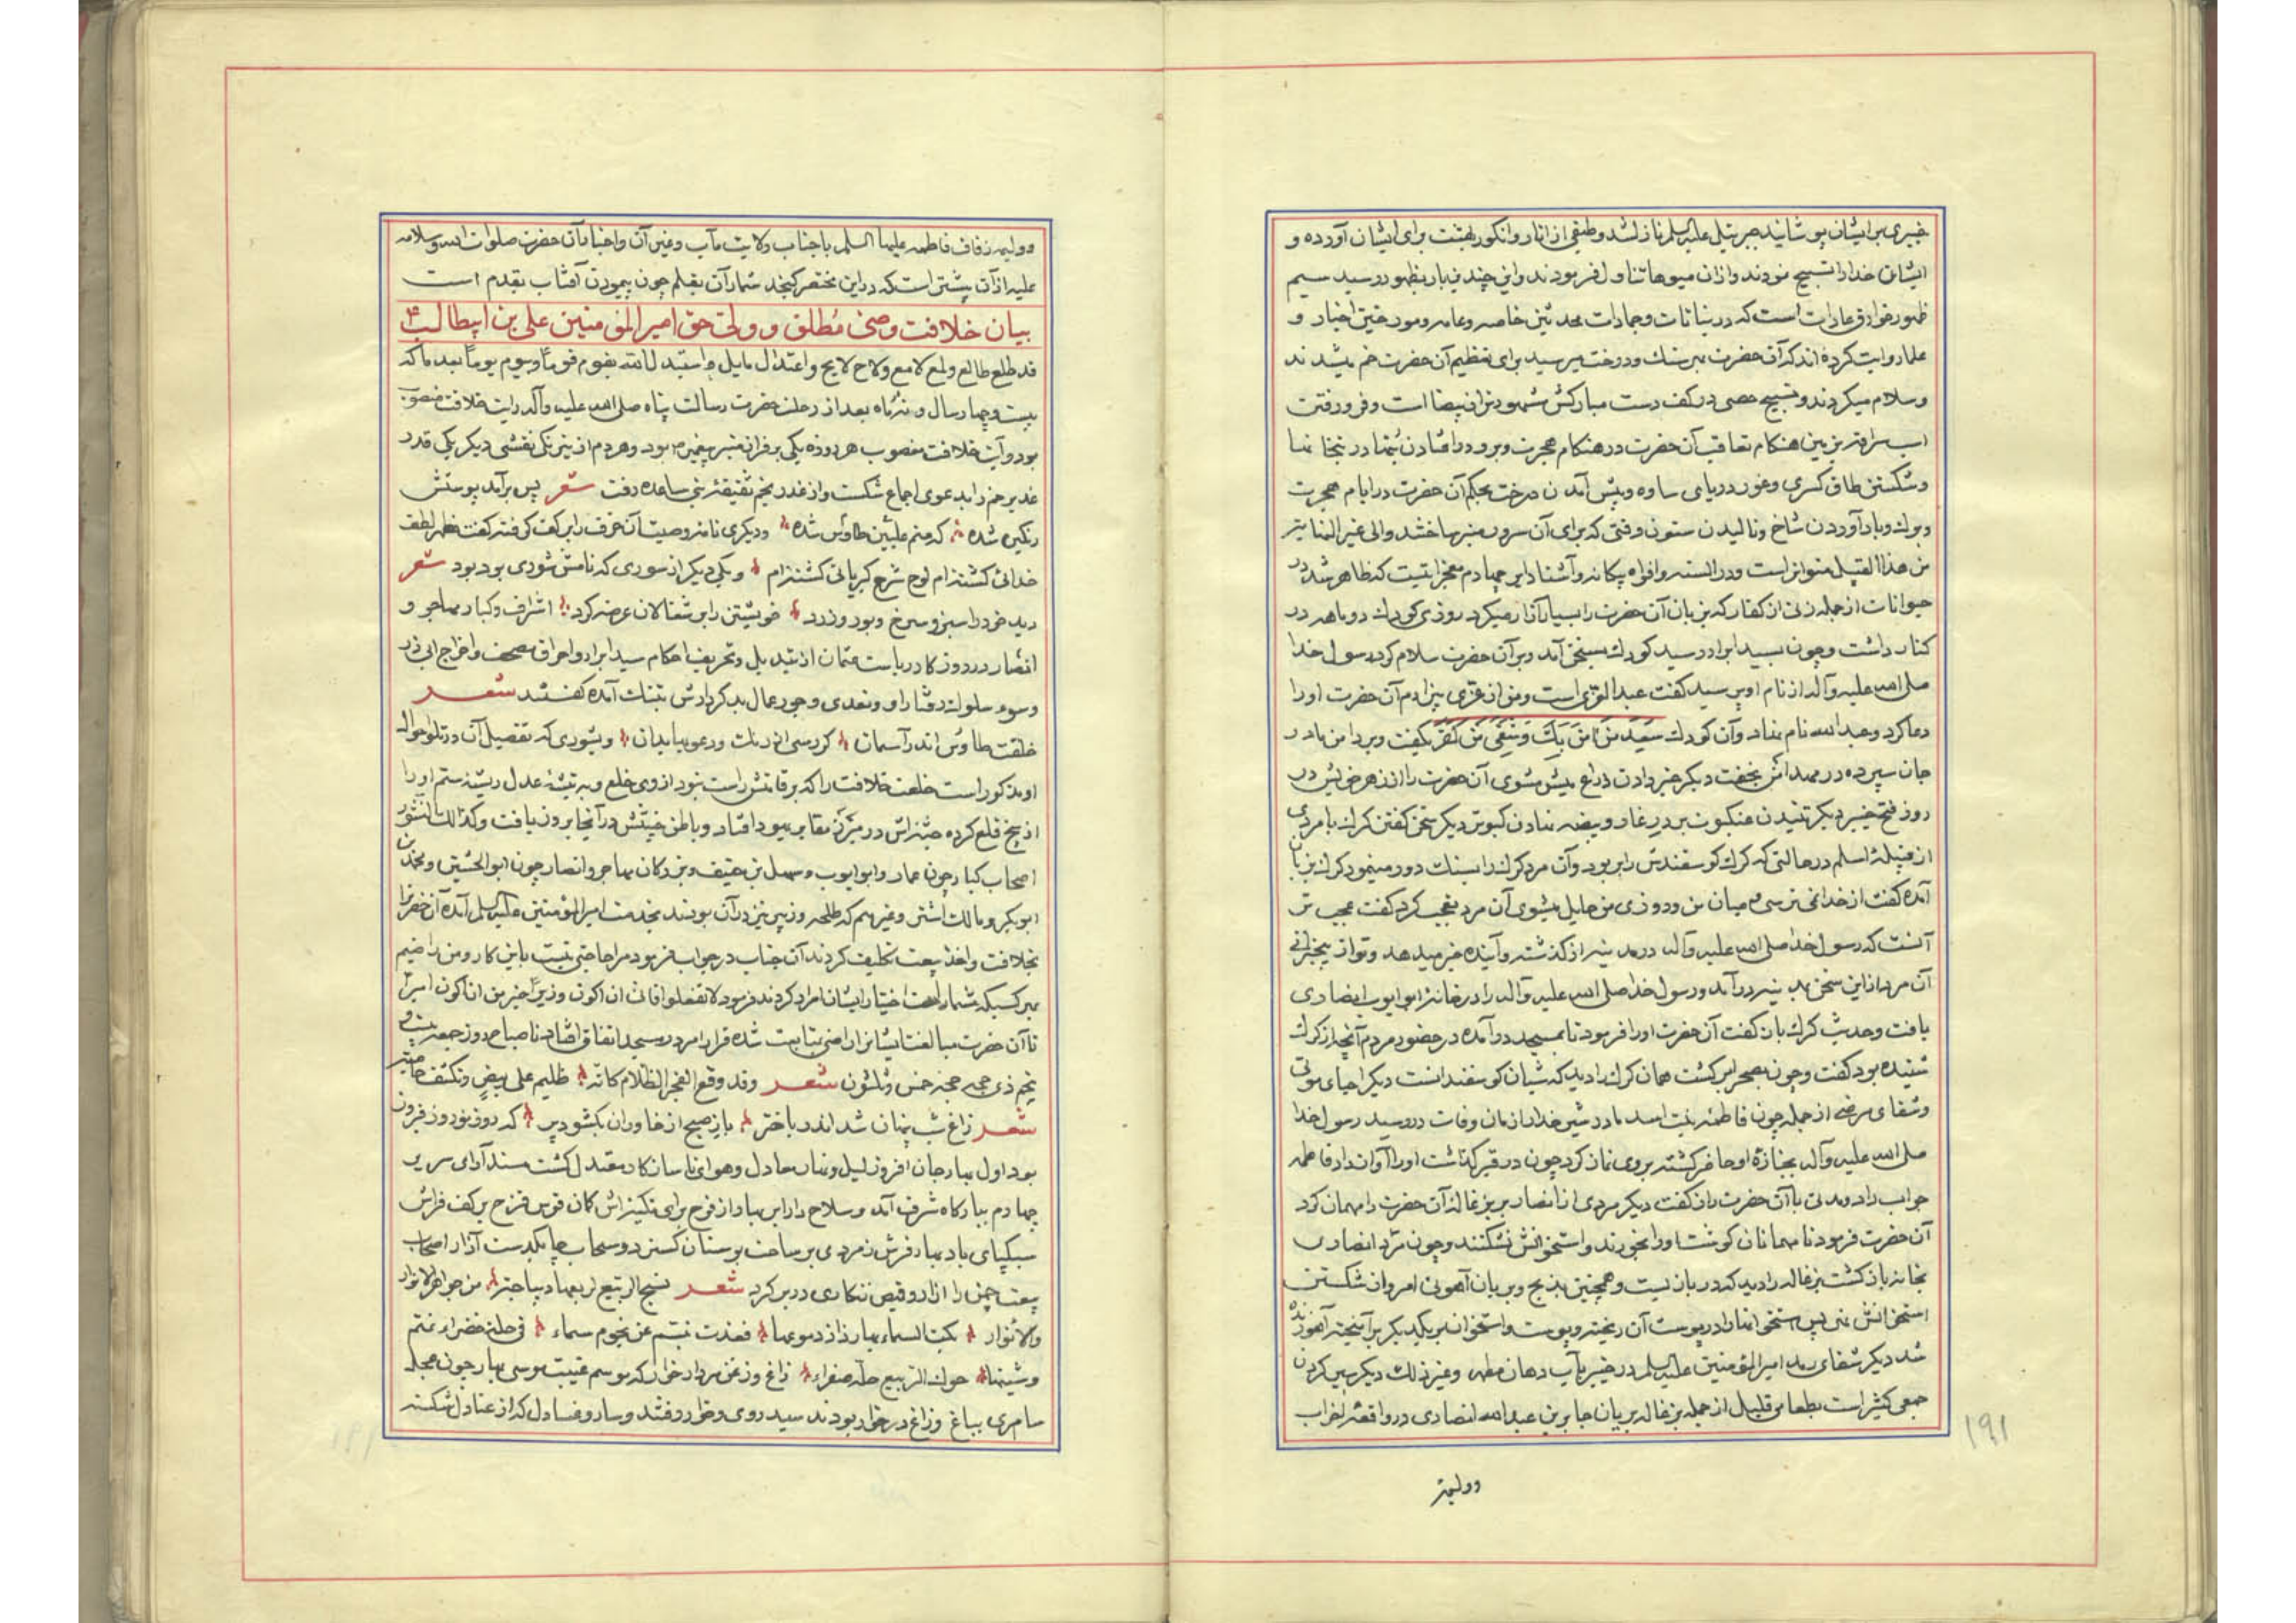 خیبری بر ایشان پوشانید جبرئیل علیه السلم نازل شد و طبقی از انار و انکور بهشت برای ایشان آورده و
ایشان خدا را تسبیح نمودند و از آن میوها تناول فرمودند و این چندین بار بظهور رسید سیم
ظهور خوارق عادات است که در نباتات و جمادات محدثین خاصه و عامه و مورخین اخبار و
علما روایت کرده اند که آن حضرت بهر سنك و درخت میرسید برای تعظیم آن حضرت خم میشدند
و سلام میکردند و تسبیح حصی در کف دست مبارکش مشهور است و فرو رفتن
اسب سراقه بزمین هنکام تعاقب آن حضرت در هنکام هجرت و برو در افتادن بتها در بتخانها
و شکستن طاق کسری و غور دریای ساوه و پیش آمدن درخت بحکم آن حضرت در ایام هجرت
و برك و بار آوردن شاخ و نالیدن ستون وقتی که برای آن سرور منبر ساختند والی غیر النهایه
من هذا القبیل متواتر است و در السنه و افواه بیکانه و آشنا دایر چهارم معجزاتیست که ظاهر شد در
حیوانات از جمله زنی از کفار که بزبان آن حضرت را بسیار آزار میکرد روزی کودك دو ماهه در
کنار داشت و چون بسید ابرار رسید کودك بسخن آمد و بر آن حضرت سلام کرد رسول خدا
صلی الله علیه و آله از نام او پرسید کفت عبد العزی است و من از عزی بیزارم آن حضرت او را
دعا کرد و عبد الله نام نهاد و آن کودك سَعِدَ مَن آمَنَ بِكَ وَ شَقِیَ مَن کَفَرَ بکفت و بر دامن مادر
جان سپرده در مهد امن بخفت دیکر خبر دادن ذراع میش مشوی آن حضرت را از زهر خویش در
روز فتح خیبر دیکر تنیدن عنکبوت بر در غار و بیضه نهادن کبوتر دیکر سخن کفتن کرك با مردی
از قبیلهٔ اسلم در حالتی که کرك کوسفندش را بربود و آن مرد کرك را بسنك دور مینمود کرك بزبان
آمده کفت از خدا نمی ترسی و میان من و روزی من حایل میشوی آن مرد تعجب کرد کفت عجب تر
آنست که رسول خدا صلی الله علیه و آله در مدینه از کذشته و آینده خبر میدهد و تو از آن بیخبرانی
آن مرد از این سخن بمدینه در آمد و رسول خدا صلی الله علیه و آله را در خانهٔ ابو ایوب انصاری
یافت و حدیث کرك بآن کفت آن حضرت او را فرمود تا بمسجد در آمده در حضور مردم آنچه از کرك
شنیده بود کفت و چون بصحرا برکشت همان کرك را دید که شبان کوسفندانست دیکر احیای موتی
و شفای مرضی از جمله چون فاطمه بنت اسد مادر شیر خدا را زمان وفات در رسید رسول خدا
صلی الله علیه و آله بجنازهٔ او حاضر کشته بر وی نماز کرد چون در قبر کذاشت او را آواز داد فاطمه
جواب داد و مدتی با آن حضرت راز کفت دیکر مردی از انصار بریز غاله آن حضرت را مهمان کرد
آن حضرت فرمود تا مهمانان کوشت او را بخورند و استخوانش نشکنند و چون مرد انصاری
بخانه باز کشت بزغاله را دید که در بان نیست و همچنین بذبح و بریان آهوئی امر و از شکستن
استخوانش نهی پس استخوانها را در پوست آن ریخته و پوست و استخوان بر یکدیکر بر آمیخته آهو زنده
شد دیکر شفای رمد امیر المؤمنین علیه السلم در خیبر بآب دهان مطهر و غیر ذلك دیکر سیر کردن
جمعی کثیر است بطعامی قلیل از جمله بزغاله بریان جابر بن عبد الله انصاری در واقعهٔ احزاب
۱۹۱
و ولیمه
و ولیمه زفاف فاطمه علیها السلم با جناب ولایت مآب و غیر آن و اخبارات آن حضرت صلوات الله و سلامه
علیه از آن بیشتر است که در این مختصر کنجد شمار آن بقلم چون پیمودن آفتاب بقدم است
بیان خلافت وصی مطلق و ولی حق امیر المؤمنین علی بن ابیطالب ع
قد طلع طالع و لمع لامع و لاح لایح و اعتدل مایل و استبدل الله بقوم قوماً و بیوم یوماً بعد ما که
بیست و چهار سال و نه ماه بعد از رحلت حضرت رسالت پناه صلی الله علیه و آله رایت خلافت منصوب
بود و آیت خلافت مغصوب هر روزه یکی بر فراز منبر پیغمبر ص بود و هر دم از نیرنکی نقشی دیکر یکی قدر
غدیر خم را بدعوی اجماع شکست و از غدر بخم ثقیفه بنی ساعده رفت شعر پس بر آمد پوستش
رنکین شده که منم علیین طاوس شده و دیکری نامه وصیت آن خرف را بر کف کرفته کفت مظهر لطف
خدائی کشته ام لوح شرح کبریائی کشته ام و یکی دیکر از سوری که نامش شوری بود بود شعر
دید خود را سبز و سرخ و بور و زرد خویشتن را بر شغالان عرضه کرد اشراف و کبار مهاجر و
انصار در روزکار ریاست عثمان از تبدیل و تحریف احکام سید ابرار و احراق مصحف و اخراج ابی ذر
و سوء سلوك و رفتار او و تعدی و جور عمال بد کردارش بتنك آمده کفتند شعر
خلقت طاوس اندر آسمان کر رسی از رنك و دعویها بدان و بشوری که تفصیل آن در تلو احوال
او مذکور است خلعت خلافت را که بر قامتش راست نبود از وی خلع و به تیشهٔ عدل ریشهٔ ستم او را
از بیخ قلع کرده جثه اش در مزبلهٔ مقابر یهود افتاد و باطن خبیثش در آنجا بروز یافت و کذلك النشور
اصحاب کبار چون عمار و ابو ایوب و سهل بن حنیف و بزرکان مهاجر و انصار چون ابو الحشین و محمد بن
ابوبکر و مالك اشتر و غیرهم که طلحه و زبیر نیز در آن بودند بخدمت امیر المؤمنین علیه السلم آمده آن حضرت را
بخلافت و اخذ بیعت تکلیف کردند آن جناب در جواب فرمود مرا حاجتی نیست باین کار و من راضیم
بهر کسیکه شما را بیعت اختیار ایشان ابرام کردند فرمود لا تفعلوا فانی ان اکون وزیراً خیر من ان اکون امیراً
تا آن حضرت بمبالغت ایشانرا راضی بمتابعت شده قرار امر در مسجد اتفاق افتاد تا صباح روز جمعه بیست و
پنجم ذی حجه حجه خمس و ثلثون شعر و قد وقع الفجر الظلام کانه ظلیم علی بیض و تکشف جانبه
شعر زاغ شب پنهان شد اندر باختر باز صبح از خاوران بکشود پر که روز نوروز فیروز
بود اول بهار جهان افروز لیل و نهار معادل و هوای ناسازکار معتدل کشت مسند آرای سریر
چهارم ببارکاه شرف آمد و سلاح دار ابر بهار از فرح برای نکیزانش کمان قوس قزح بر کف فراش
سبکپای باد بهار فرش زمردی بر ساحت بوستان کسترد و سحاب چابکدست آذار اصحاب
بیعت چمن را ازار و قمیص زنکاری در بر کرد شعر نسج الربیع لربعها دیباجة من جواهر الانوار
والانوار بکت السماء بها رذاذ دموعها فغدت تبسم عن نجوم سماء فی حلة خضراء نمنم
وشیها حوك الربیع حلة صفراء زاغ و زغن مردار خوار که موسم غیبت موسی بهار چون عجله
سامری بباغ و راغ در خوار بودند سید روی و خوار رفتند و سار و فسادل که از عنادل شکسته